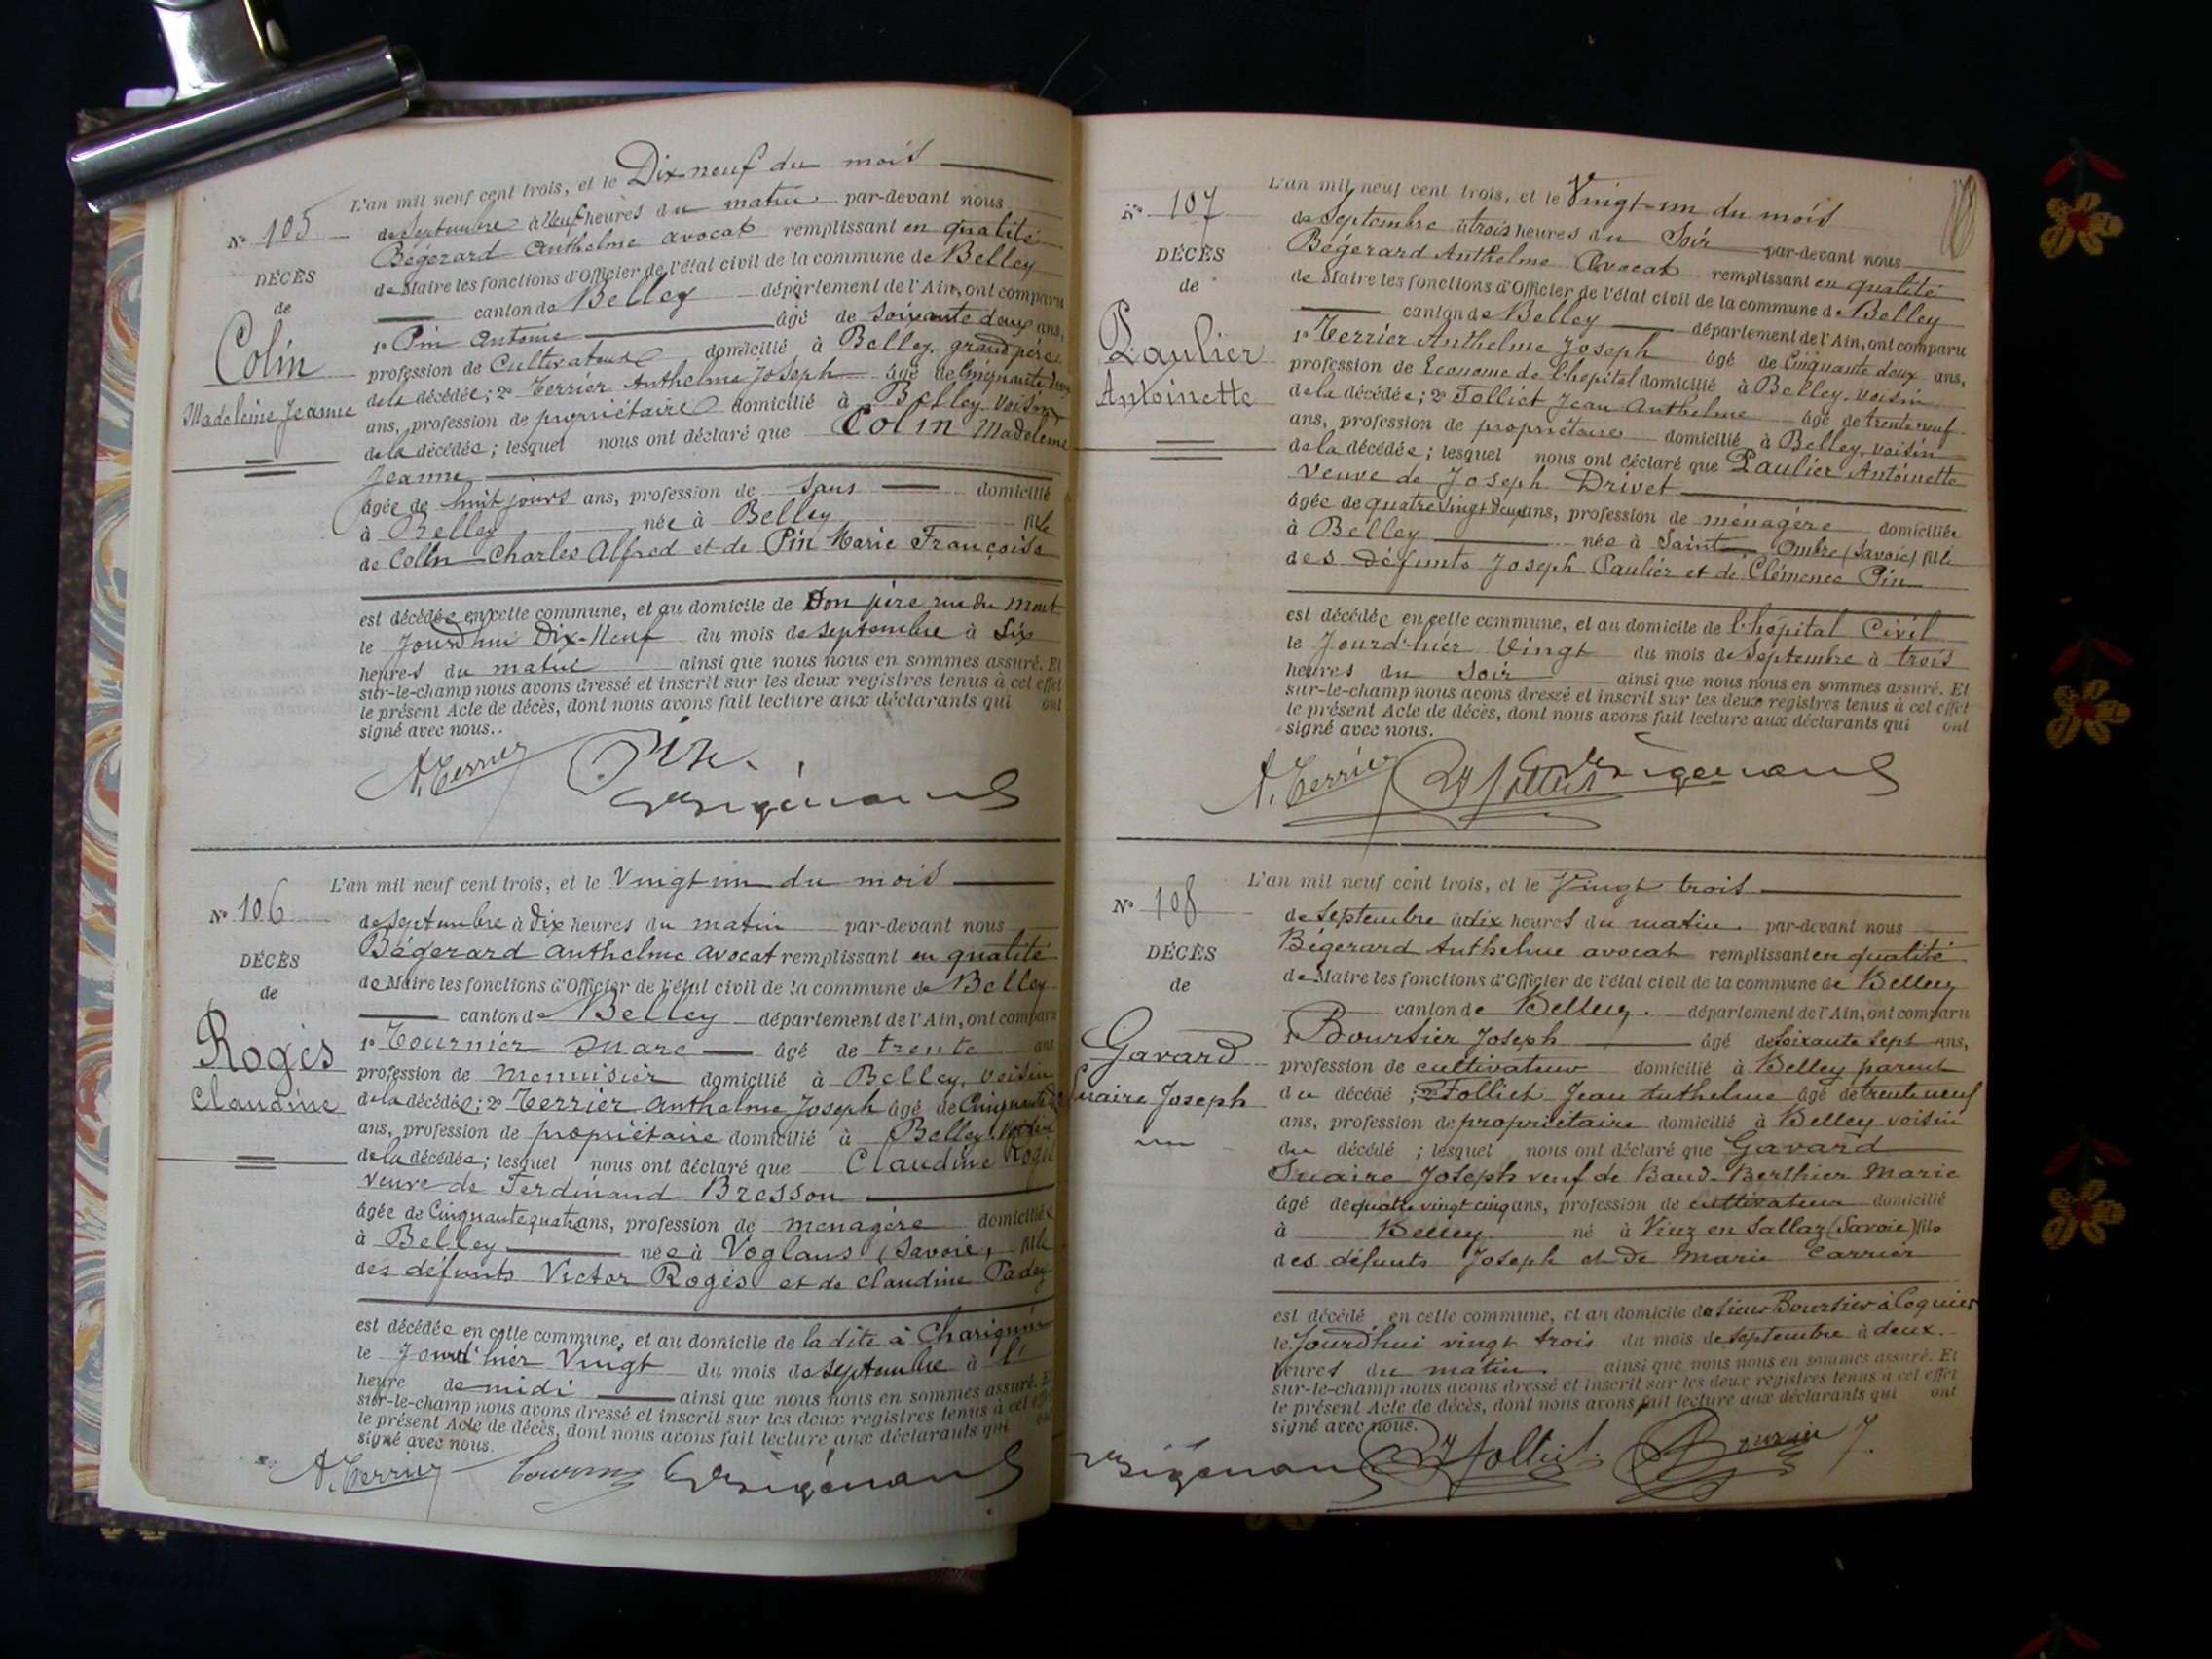 N° 105
DÉCÈS
de
Colin
Madeleine Jeanne
L'an mil neuf cent trois, et le Dix neuf du mois
de Septembre à Neuf heures du matin par-devant nous
Bégerard Anthelme avocat remplissant en qualité
de Maire les fonctions d'Officier de l'état civil de la commune de Belley
canton de Belley département de l'Ain, ont comparu
1° Pin Antoine âgé de Soixante deux ans,
profession de Cultivateur domicilié à Belley, grand père
de la décédée; 2° Terrier Anthelme Joseph âgé de Cinquante deux
ans, profession de propriétaire domicilié à Belley, voisin
de la décédée; lesquel nous ont déclaré que Colin Madeleine
Jeanne
âgée de huit jours ans, profession de Sans domicilié
à Belley née à Belley fille
de Colin Charles Alfred et de Pin Marie Françoise
est décédée en cette commune, et au domicile de Son père rue du Mont
le Jourd'hui Dix-Neuf du mois de Septembre à Six
heures du matin ainsi que nous nous en sommes assuré. Et
sur-le-champ nous avons dressé et inscrit sur les deux registres tenus à cet effet
le présent Acte de décès, dont nous avons fait lecture aux déclarants qui ont
signé avec nous.
A. Terrier Pin
N° 106
DÉCÈS
de
Rogès
Claudine
L'an mil neuf cent trois, et le Vingt un du mois
de septembre à Dix heures du matin par-devant nous
Bégerard Anthelme avocat remplissant en qualité
de Maire les fonctions d'Officier de l'état civil de la commune de Belley
canton de Belley département de l'Ain, ont comparu
1° Tournier Marc âgé de trente ans
profession de Menuisier domicilié à Belley, voisin
de la décédée; 2° Terrier Anthelme Joseph âgé de Cinquante
ans, profession de propriétaire domicilié à Belley, voisin
de la décédée; lesquel nous ont déclaré que Claudine Rogès
Veuve de Ferdinand Bresson
âgée de Cinquante quatre ans, profession de ménagère domiciliée
à Belley née à Voglans (Savoie) fille
des défunts Victor Rogès et de Claudine Padey
est décédée en cette commune, et au domicile de la dite à Charignin
le Jourd'hier Vingt du mois de septembre à l'
heure de midi ainsi que nous nous en sommes assuré. Et
sur-le-champ nous avons dressé et inscrit sur les deux registres tenus à cet effet
le présent Acte de décès, dont nous avons fait lecture aux déclarants qui ont
signé avec nous.
A. Terrier
N° 107
DÉCÈS
de
Paulier
Antoinette
L'an mil neuf cent trois, et le Vingt-un du mois
de Septembre à trois heures du Soir par-devant nous
Bégerard Anthelme Avocat remplissant en qualité
de Maire les fonctions d'Officier de l'état civil de la commune de Belley
canton de Belley département de l'Ain, ont comparu
1° Terrier Anthelme Joseph âgé de Cinquante deux ans,
profession de Econome de l'hôpital domicilié à Belley, voisin
de la décédée; 2° Folliet Jean Anthelme âgé de trente neuf
ans, profession de propriétaire domicilié à Belley, voisin
de la décédée; lesquel nous ont déclaré que Paulier Antoinette
Veuve de Joseph Drivet
âgée de quatre vingt deux ans, profession de ménagère domiciliée
à Belley née à Saint Ombre (Savoie) fille
des défunts Joseph Paulier et de Clémence Pin
est décédée en cette commune, et au domicile de l'hôpital Civil
le Jourd'hier Vingt du mois de Septembre à trois
heures du Soir ainsi que nous nous en sommes assuré. Et
sur-le-champ nous avons dressé et inscrit sur les deux registres tenus à cet effet
le présent Acte de décès, dont nous avons fait lecture aux déclarants qui ont
signé avec nous.
A. Terrier
N° 108
DÉCÈS
de
Gavard
Suaire Joseph
L'an mil neuf cent trois, et le Vingt trois
de Septembre à dix heures du matin par-devant nous
Bégerard Anthelme avocat remplissant en qualité
de Maire les fonctions d'Officier de l'état civil de la commune de Belley
canton de Belley département de l'Ain, ont comparu
1° Boursier Joseph âgé de Soixante sept ans,
profession de cultivateur domicilié à Belley parent
du décédé; 2° Folliet Jean Anthelme âgé de trente neuf
ans, profession de propriétaire domicilié à Belley voisin
du décédé; lesquel nous ont déclaré que Gavard
Suaire Joseph veuf de Baud-Berthier Marie
âgé de quatre vingt cinq ans, profession de cultivateur domicilié
à Belley né à Viuz en Sallaz (Savoie) fils
des défunts Joseph et de Marie Carrier
est décédé en cette commune, et au domicile de sieur Boursier à Coquier
le Jourd'hui vingt trois du mois de septembre à deux
heures du matin ainsi que nous nous en sommes assuré. Et
sur-le-champ nous avons dressé et inscrit sur les deux registres tenus à cet effet
le présent Acte de décès, dont nous avons fait lecture aux déclarants qui ont
signé avec nous.
Folliet